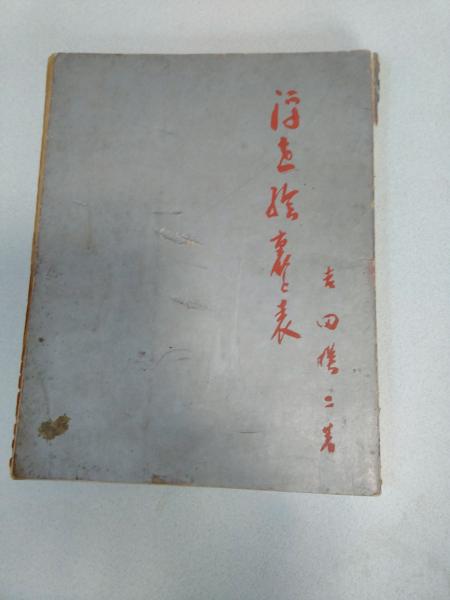 浮世絵裏と表
吉田暎二著